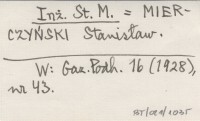 Inż. St. M. = MIER-
CZYŃSKI Stanisław.
W: Gaz. Podh. 16 (1928),
nr 43.